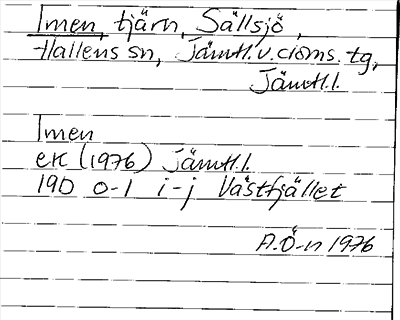 Imen, tjärn, Sällsjö,
Hallens sn, Jämtl.v.doms.tg,
Jämtl.l.
Imen
ek (1976) Jämtl.l.
19D 0-1 i-j Västfjället
A.Ö-n 1976